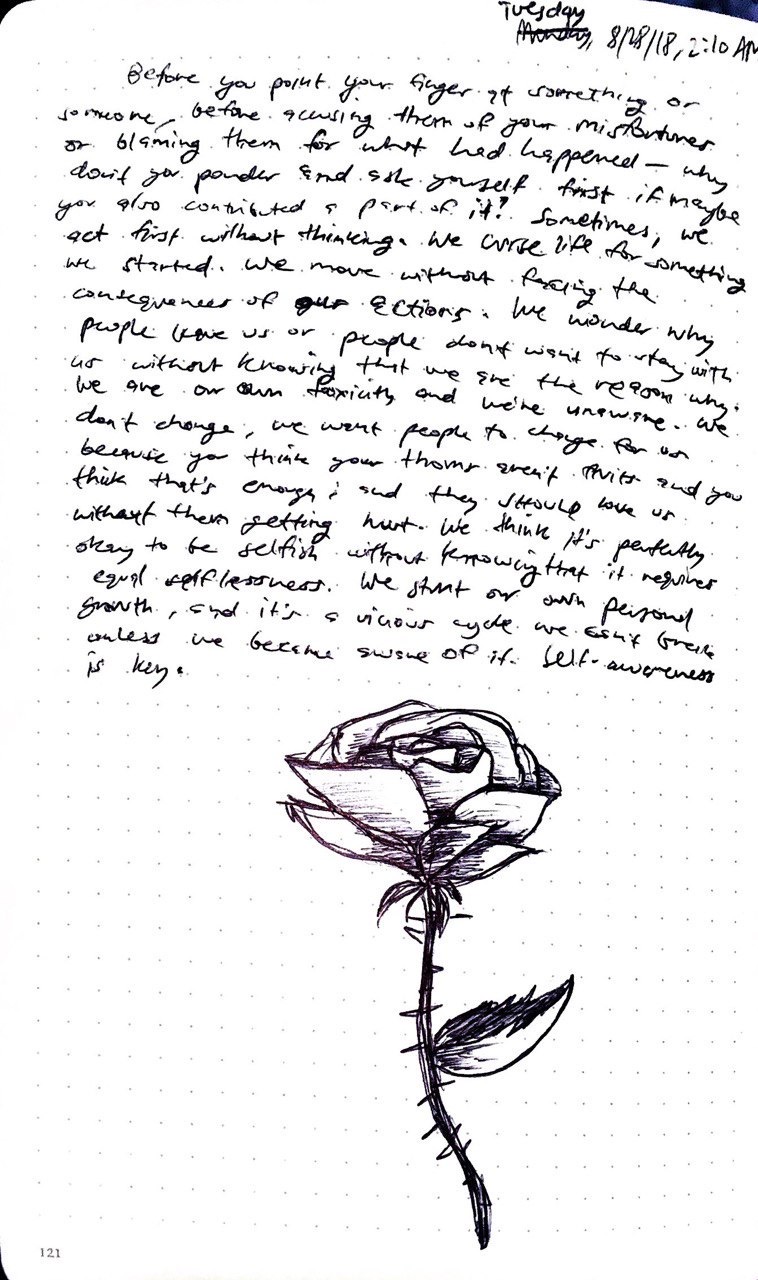 Tuesday
Monday, 8/28/18, 2:10 AM
Before you point your finger at something or
someone, before accusing them of your misfortunes
or blaming them for what had happened — why
don't you ponder and ask yourself first if maybe
you also contributed a part of it? Sometimes, we
act first without thinking. We curse life for something
we started. We move without facing the
consequences of our actions. We wonder why
people leave us or people don't want to stay with
us without knowing that we are the reason why.
We are our own toxicity and we're unaware. We
don't change, we want people to change for us
because you think your thorns aren't and you
think that's enough; and they should love us
without them getting hurt. We think it's perfectly
okay to be selfish without knowing that it requires
equal selflessness. We stunt our own personal
growth, and it's a vicious cycle we can't break
unless we became aware of it. Self-awareness
is key.
121